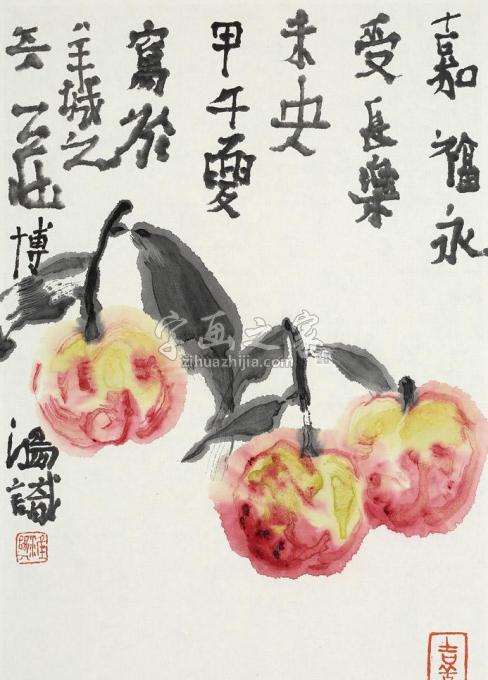 嘉福永
受長樂
未央
甲午夏
寫於
羊城之
博
字画之家
zihuazhijia.com